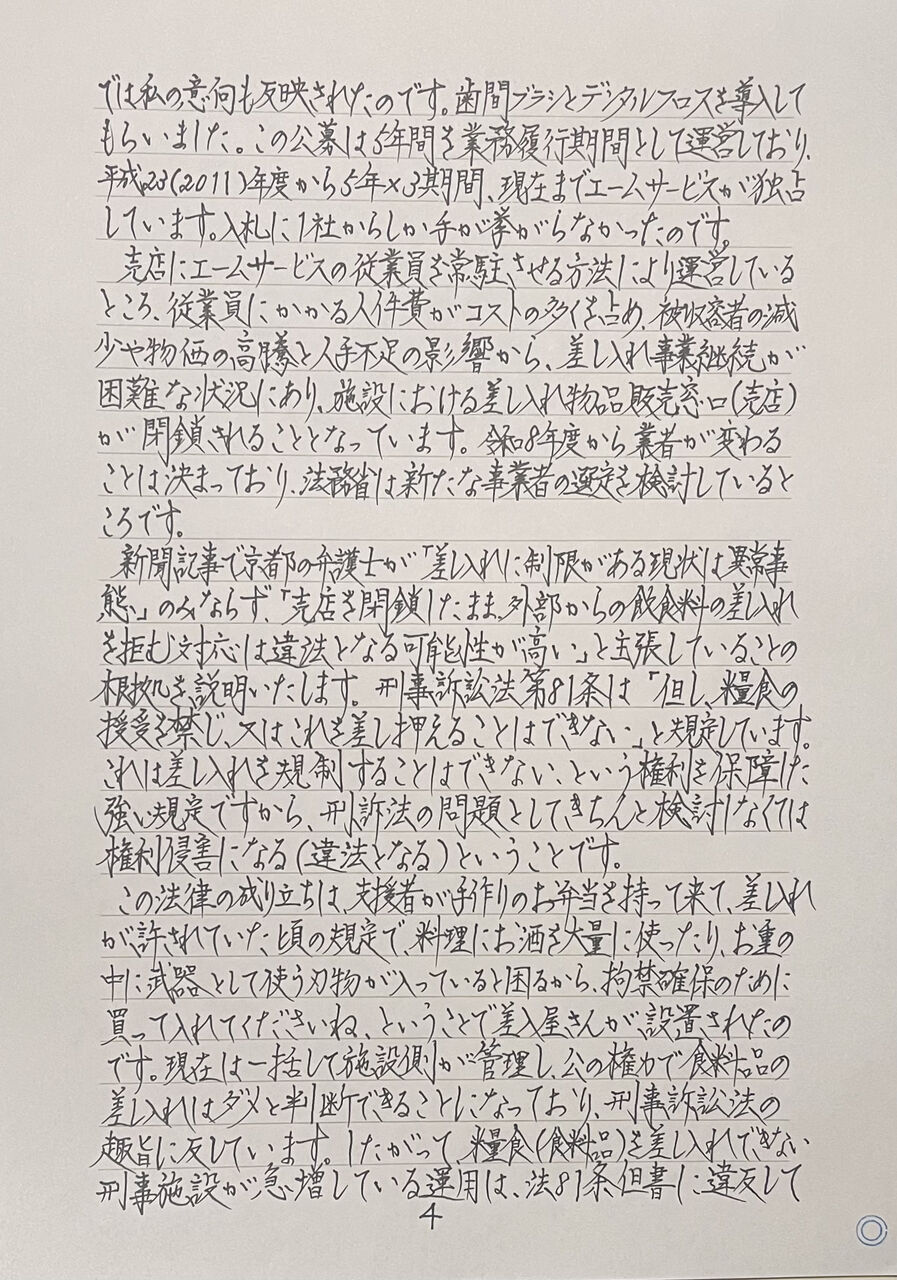 では私の意向も反映されたのです。歯間ブラシとデンタルフロスを導入して
もらいました。この公募は5年間を業務履行期間として運営しており、
平成23(2011)年度から5年×3期間、現在までエームサービスが独占
しています。入札に1社からしか手が挙がらなかったのです。
売店にエームサービスの従業員を常駐させる方法により運営している
ところ、従業員にかかる人件費がコストの多くを占め、被収容者の減
少や物価の高騰と人手不足の影響から、差し入れ事業継続が
困難な状況にあり、施設における差し入れ物品販売窓口(売店)
が閉鎖されることとなっています。令和8年度から業者が変わる
ことは決まっており、法務省は新たな事業者の選定を検討していると
ころです。
新聞記事で京都の弁護士が「差し入れに制限がある現状は異常事
態」のみならず、「売店を閉鎖したまま、外部からの飲食料の差し入れ
を拒む対応は違法となる可能性が高い」と主張していることの
根拠を説明いたします。刑事訴訟法第81条は「但し、糧食の
授受を禁じ、又はこれを差し押えることはできない」と規定しています。
これは差し入れを規制することはできない、という権利を保障した
強い規定ですから、刑訴法の問題としてきちんと検討しなくては
権利侵害になる(違法となる)ということです。
この法律の成り立ちは、支援者が手作りのお弁当を持って来て、差し入れ
が許されていた頃の規定で、料理にお酒を大量に使ったり、お重の
中に武器として使う刃物が入っていると困るから、拘禁確保のために
買って入れてくださいね、ということで差入屋さんが設置されたの
です。現在は一括して施設側が管理し、公の権力で食料品の
差し入れはダメと判断できることになっており、刑事訴訟法の
趣旨に反しています。したがって、糧食(食料品)を差し入れできない
刑事施設が急増している運用は、法81条但書に違反して
4